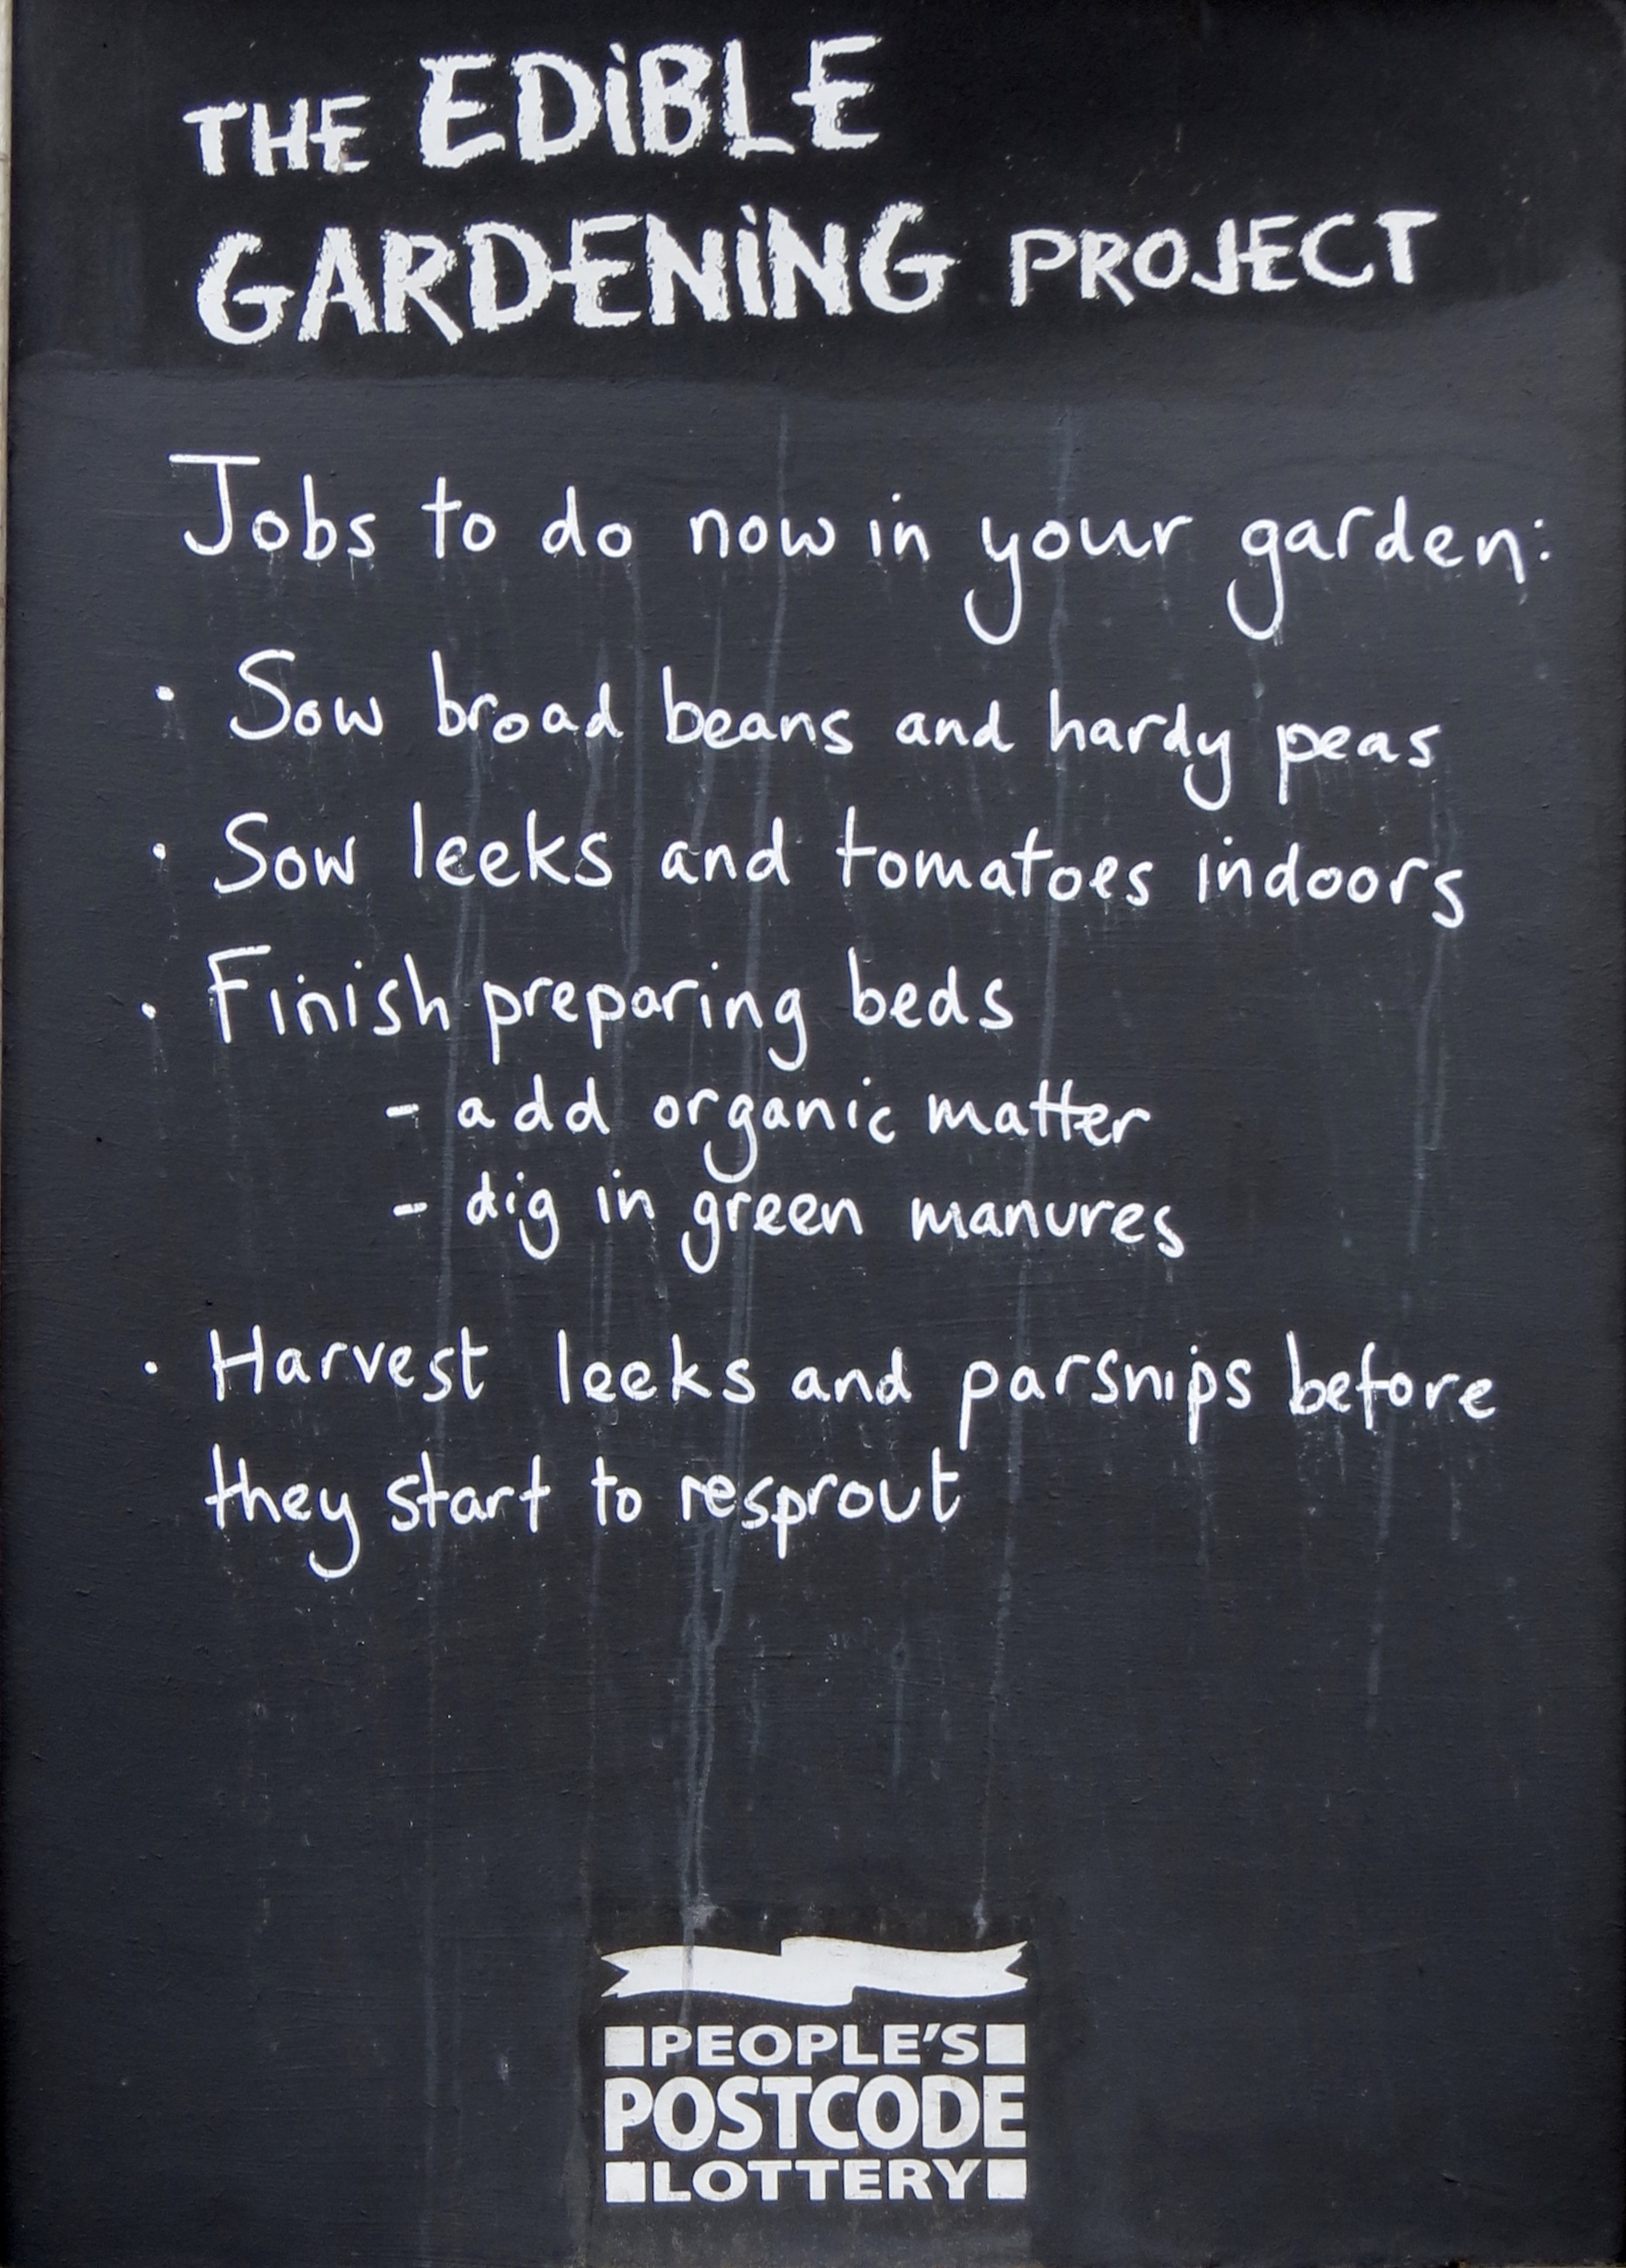 THE EDiBLE
GARDENiNG PROJECT
Jobs to do now in your garden:
• Sow broad beans and hardy peas
• Sow leeks and tomatoes indoors
• Finish preparing beds
- add organic matter
- dig in green manures
• Harvest leeks and parsnips before
they start to resprout
PEOPLE'S
POSTCODE
LOTTERY